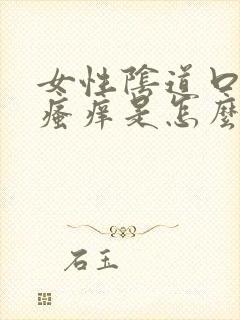 女性陰道口
瘙痒是怎麼
石玉